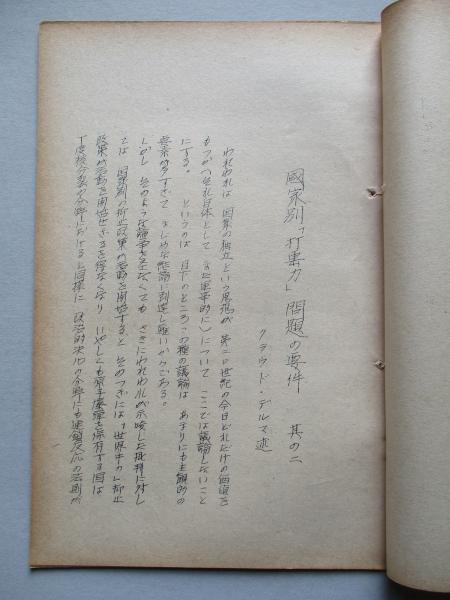 國家別「打撃力」問題の要件 其の二
クラウド・デルマ述
われわれは 国家の独立という思想が 第二〇世紀の今日どれだけの価値を
もつか(それ自体として また軍事的に)について ここでは議論しないこと
にする。 というのは 目下のところこの種の議論は あまりにも主観的の
要素が多すぎて まじめな結論に到達し難いからである。
しかし そのような論争をしなくても さきにわれわれが示唆した批判に対し
ては 国家別の抑止政策が活動を開始すると そのつぎには「世界中の」抑止
政策が活動を開始せざるを得なくなり いやしくも原子爆弾を保有する国は
丁度核分裂の分野におけると同様に 政治的決定の分野にも連鎖反応の法則が